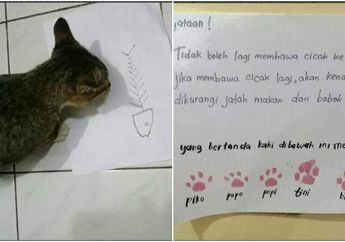 yataan !
Tidak boleh lagi membawa cicak ke
jika membawa cicak lagi, akan kena
dikurangi jatah makan dan bobok
yang bertanda kaki dibawah ini me
piko popo popi tini b